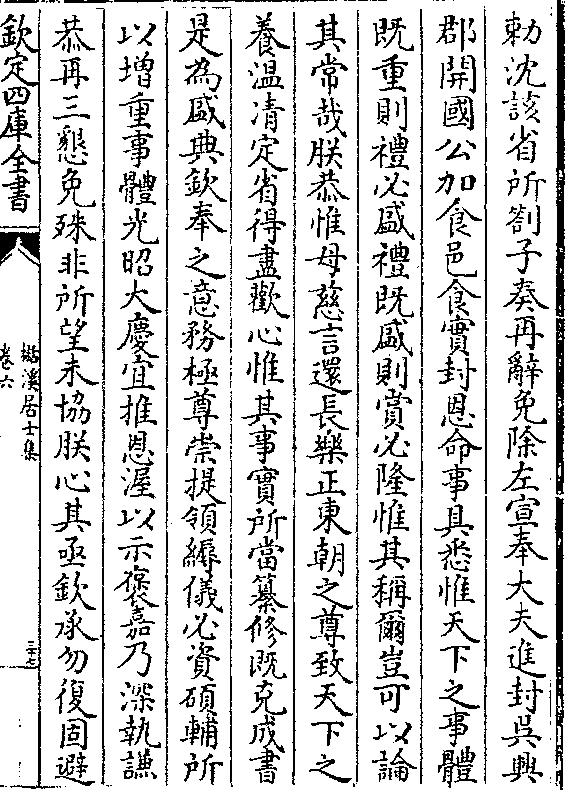 勅沈該省所劄子奏再辭免除左宣奉大夫進封吳興
郡開國公加食邑食實封恩命事具悉惟天下之事體
既重則禮必盛禮既盛則賞必隆惟其稱爾豈可以論
其常哉朕恭惟母慈言還長樂正東朝之尊致天下之
養温凊定省得盡歡心惟其事實所當纂修既克成書
是為盛典欽奉之意務極尊崇提領縟儀必資碩輔所
以增重事體光昭大慶宜推恩渥以示褒嘉乃深執謙
恭再三懇免殊非所望未協朕心其亟欽承勿復固避
欽定四庫全書
溪居士集
卷六
三十七